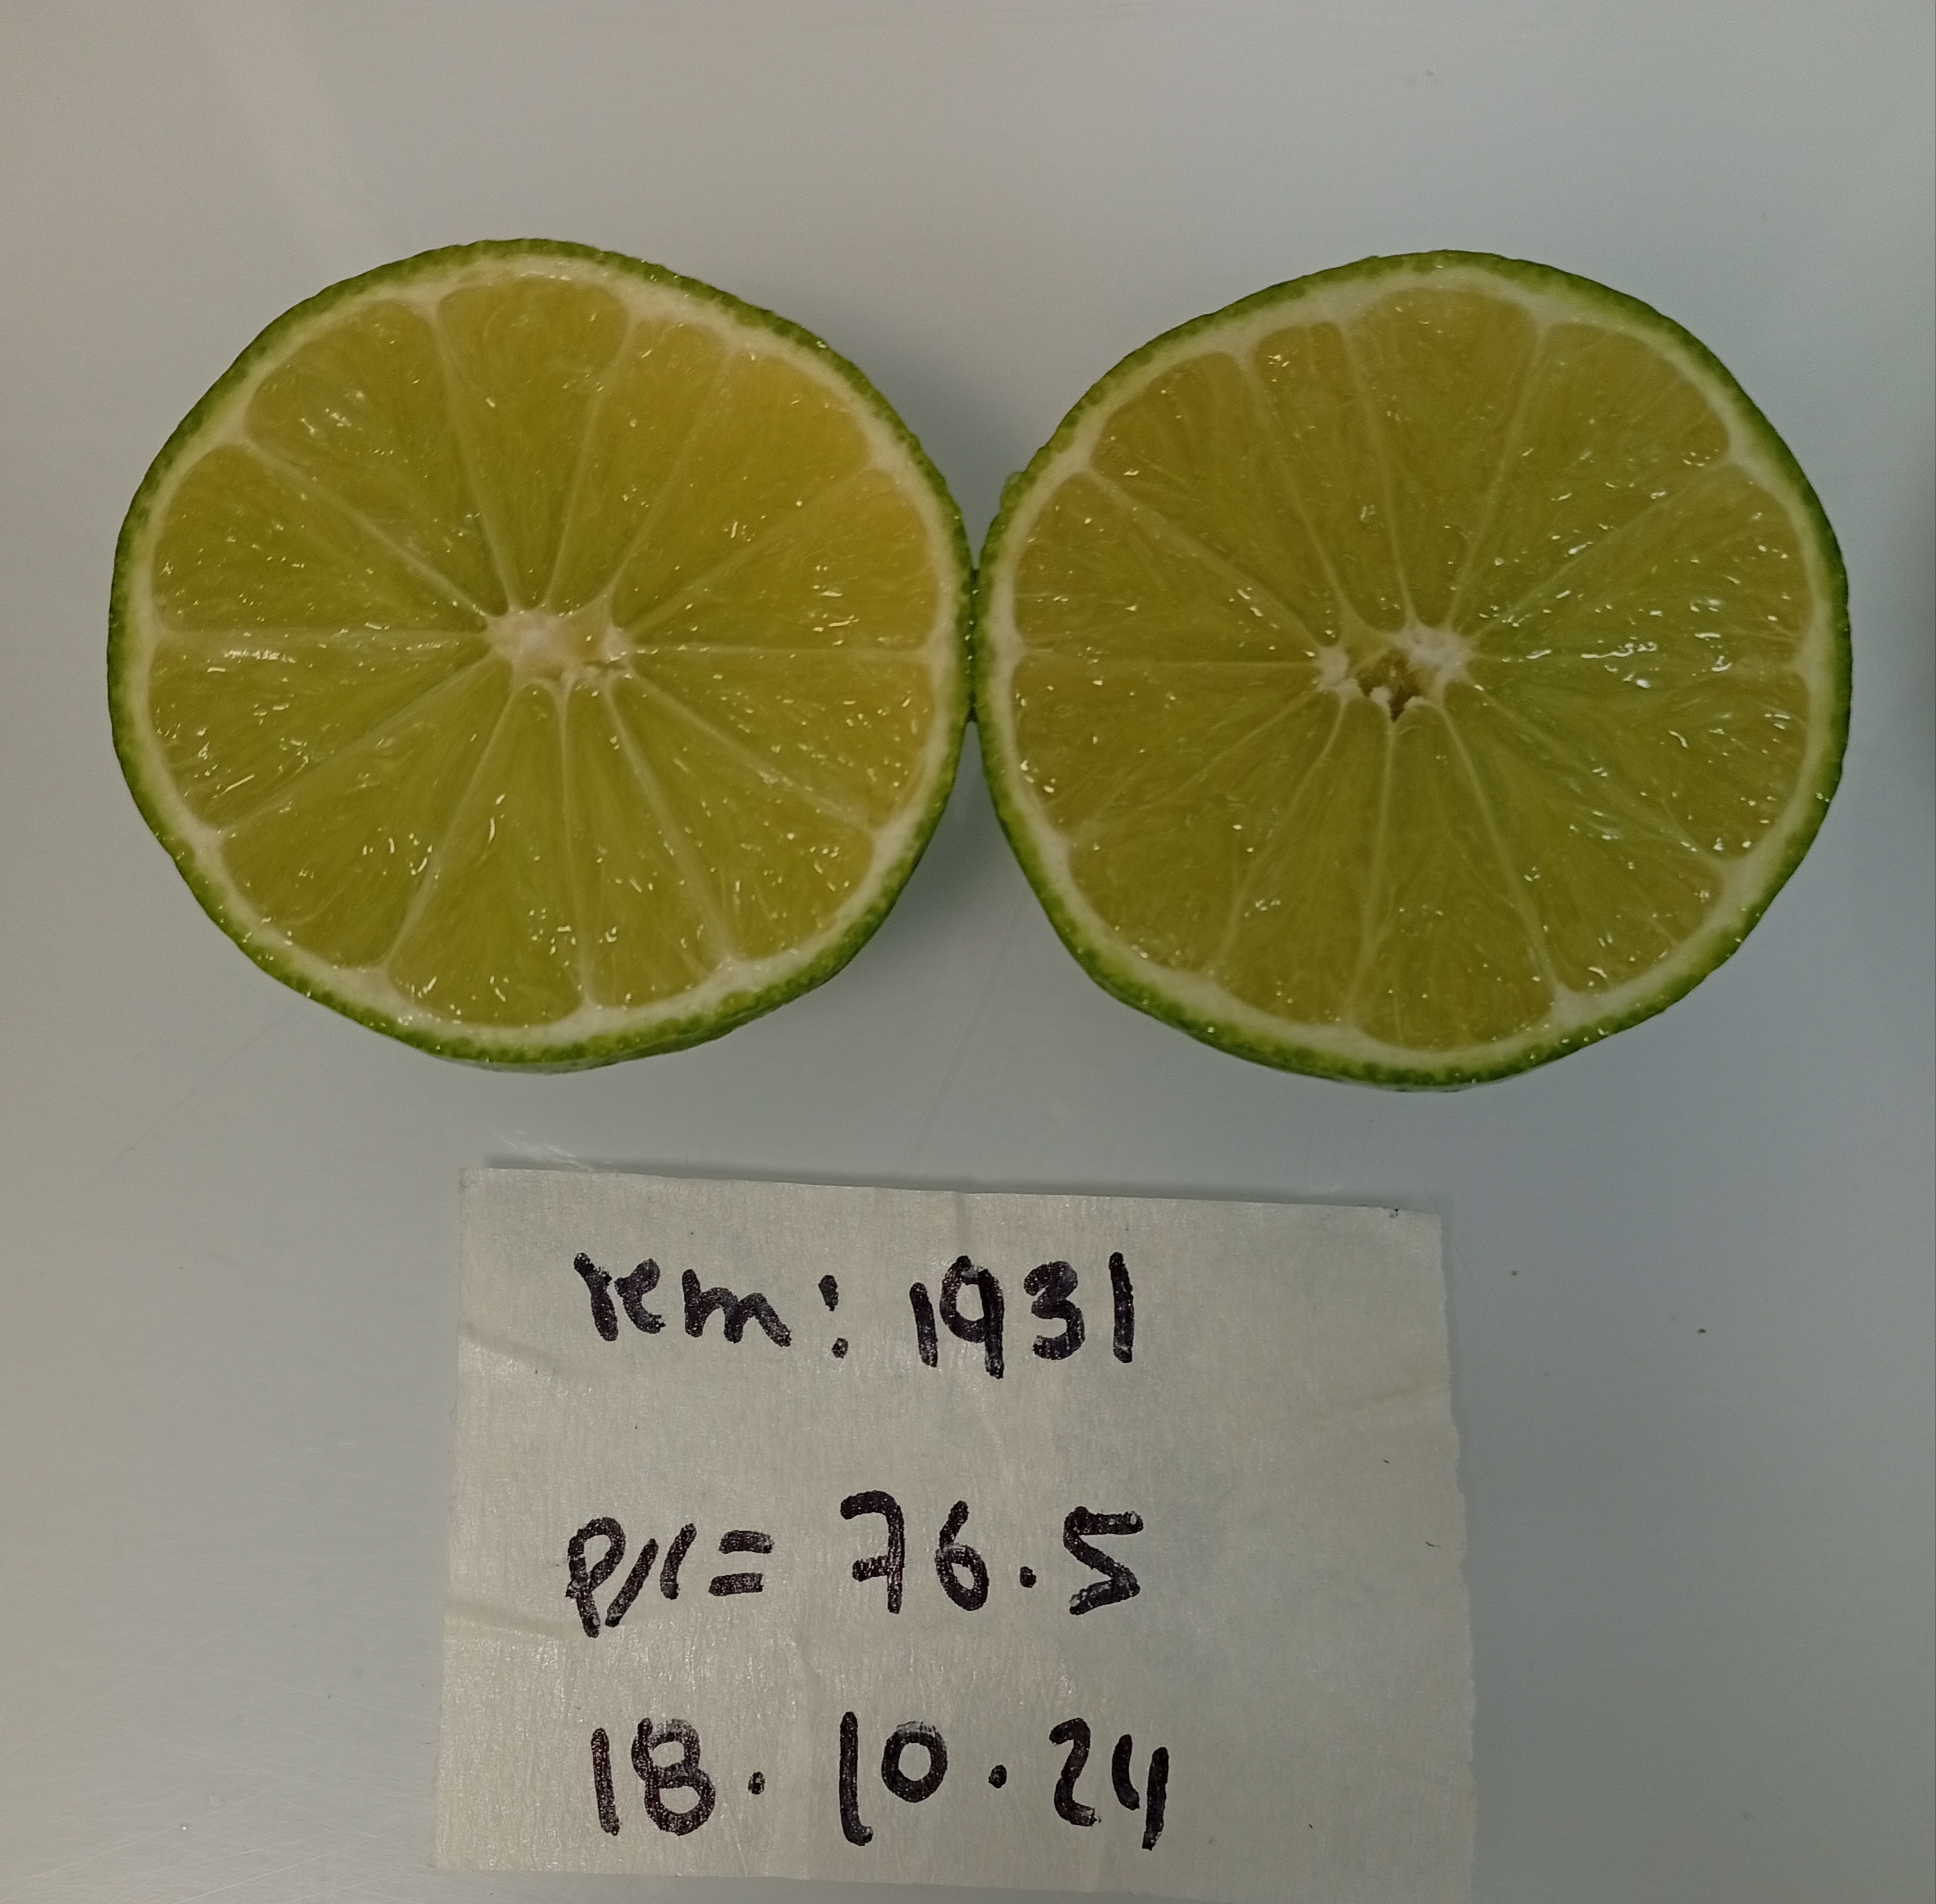 rem: 1931
px= 76.5
18.10.24